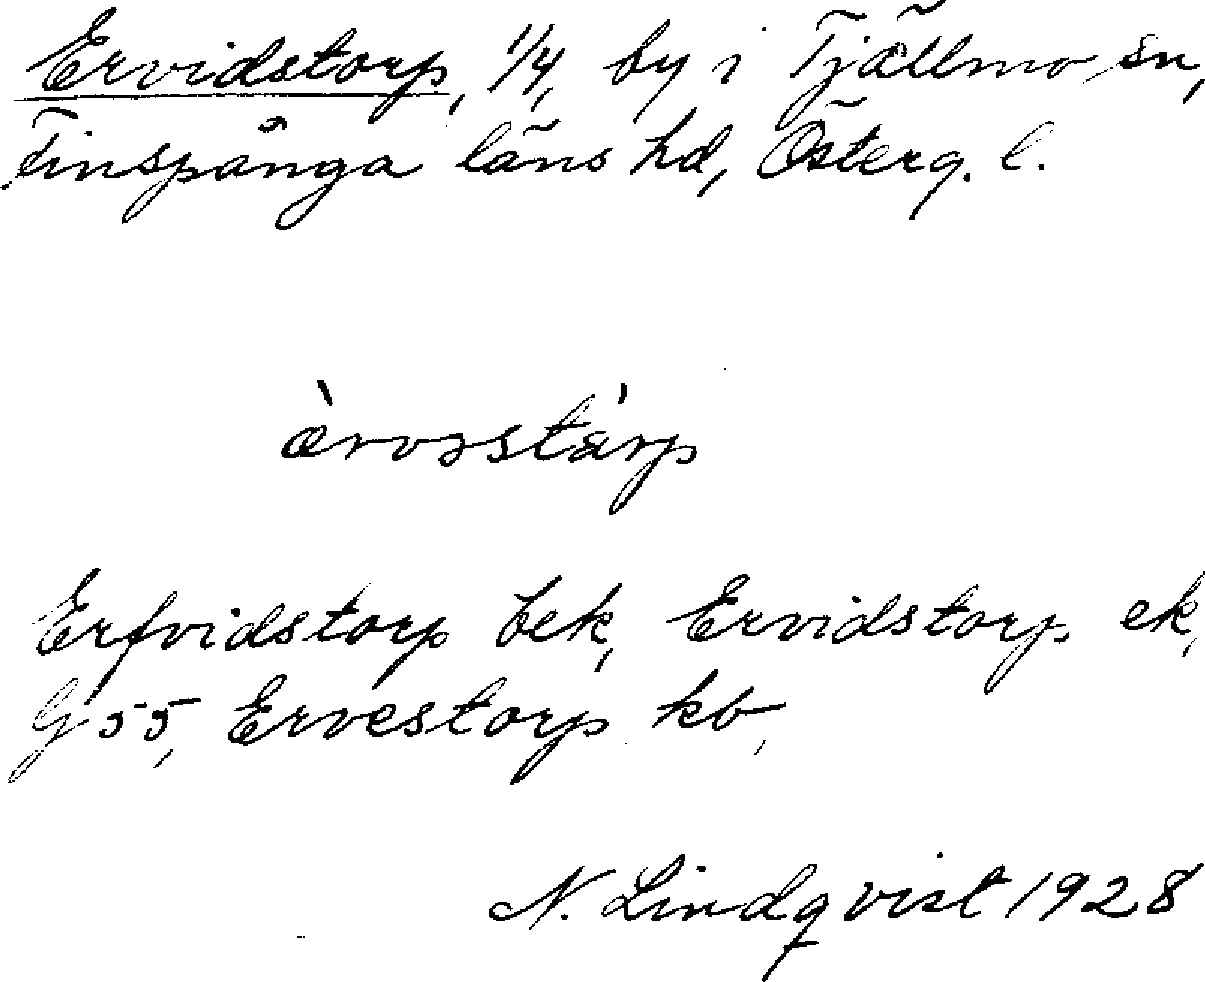 Ervidstorp, 1/4, by i Tjällmo sn,
Finspånga läns hd, Österg. l.
ærvɔstàrp
Erfvidstorp bek, Ervidstorp ek,
G 55, Ervestorp kb,
N. Lindqvist 1928